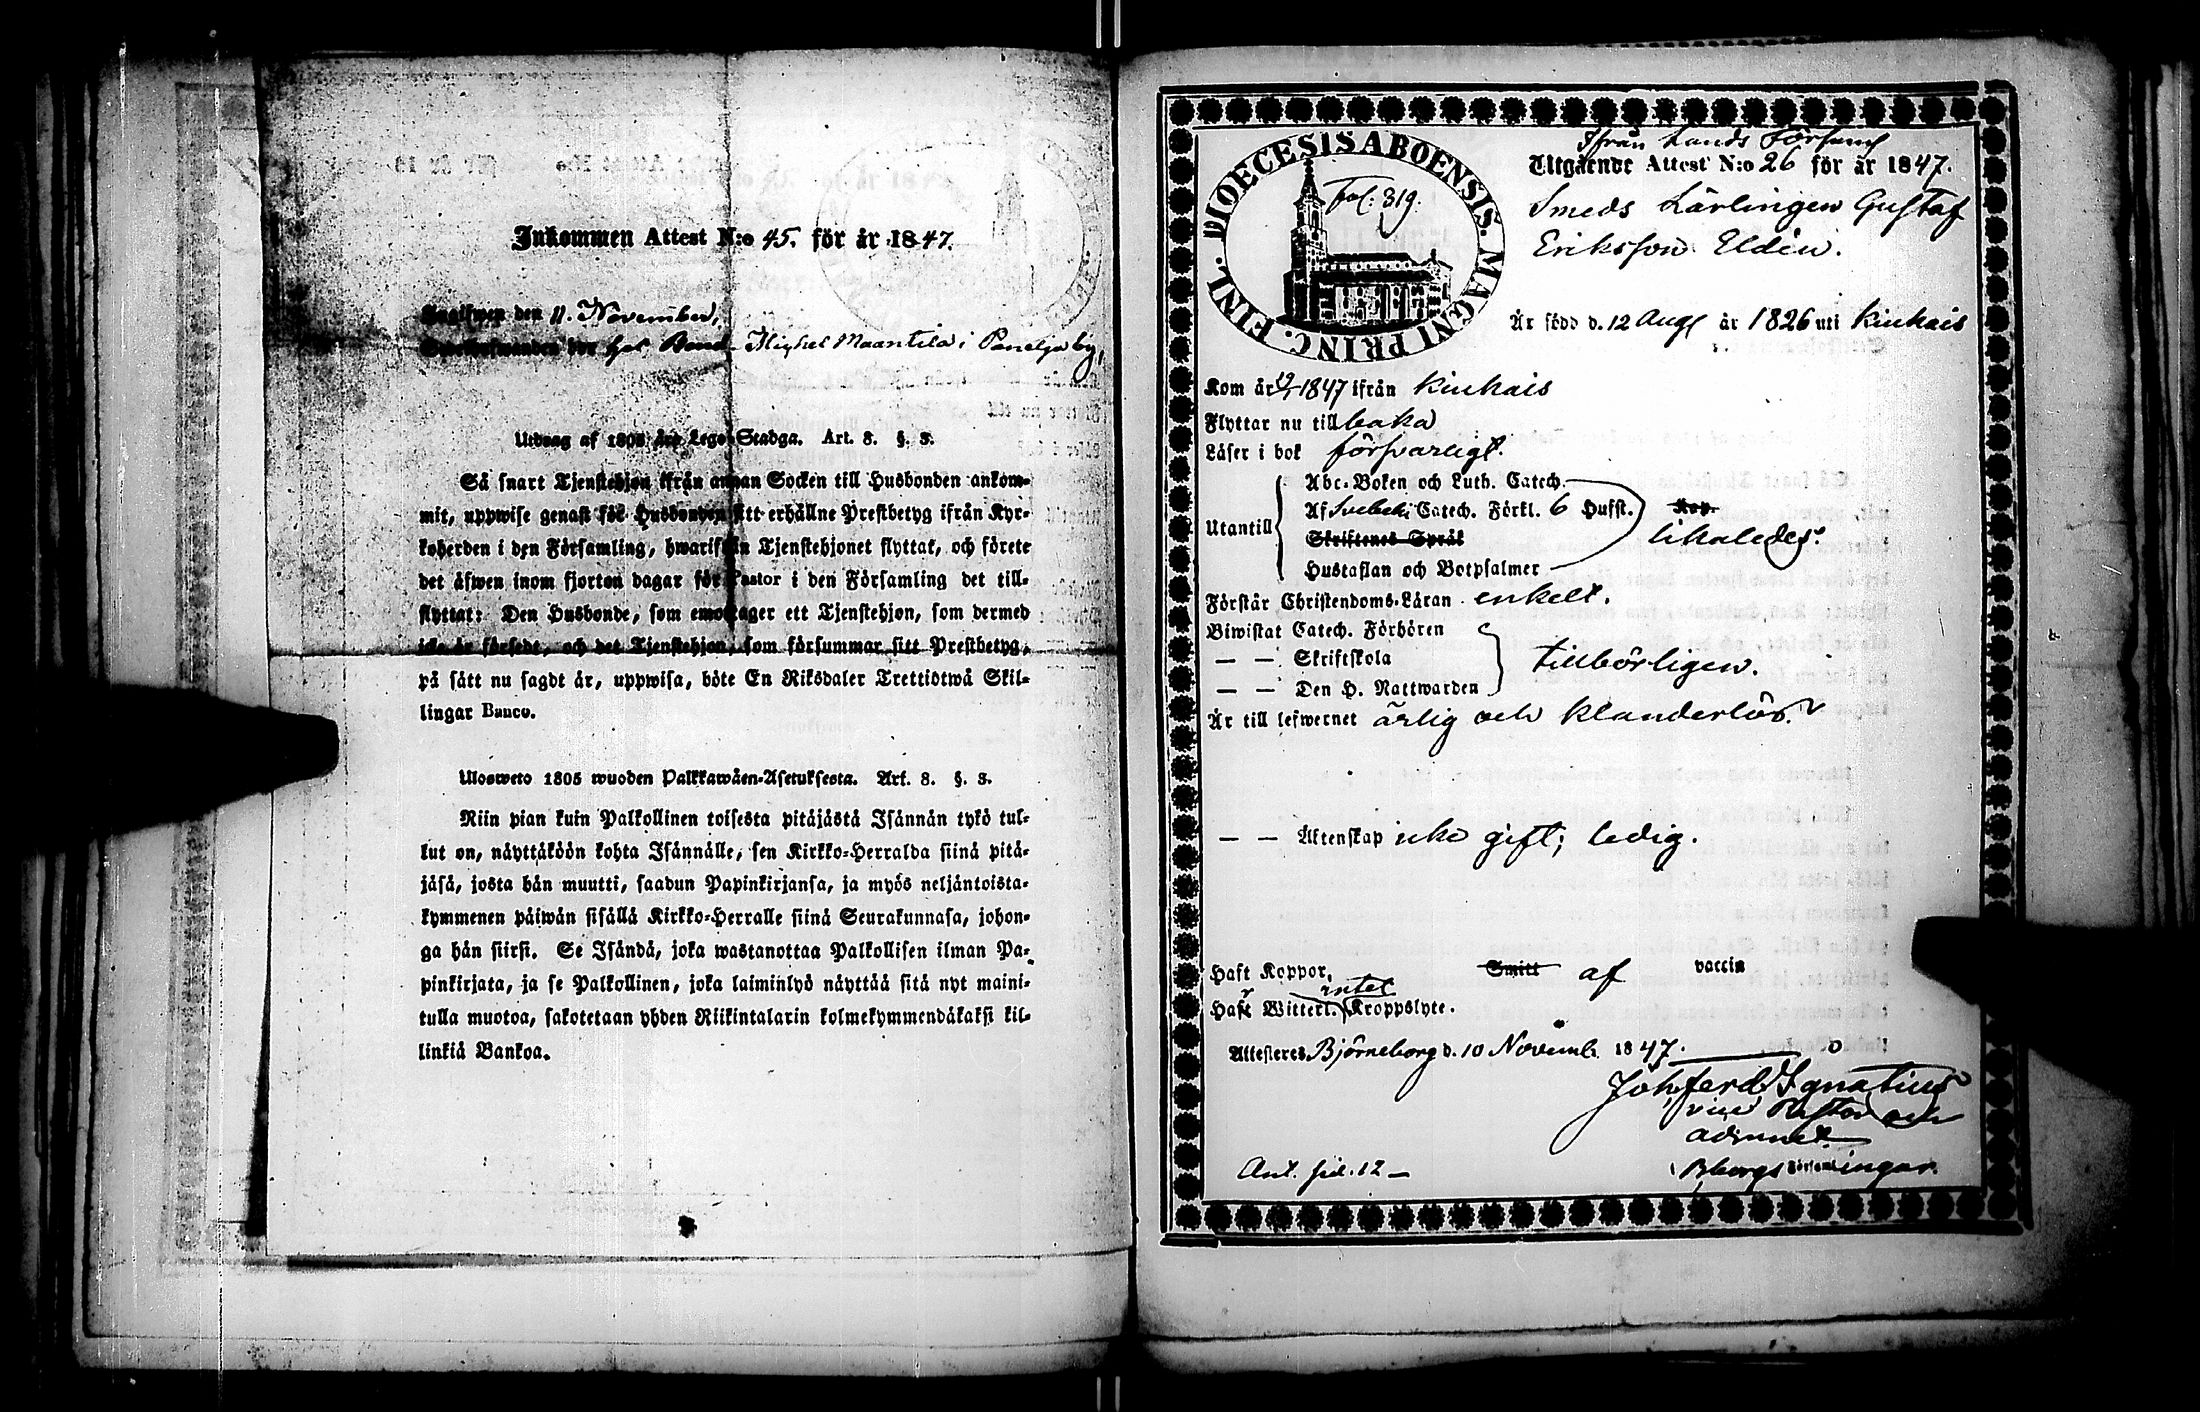 Inkommen Attest N:o 45. för år 1847.
Inglfwen den 11. November,
hos Bond. Michel Maantila i Panelja by,
Utdrag af 1805 års Lego-Stadga. Art. 8. §. 3.
Så snart Tjenstehjon ifrån annan Socken till Husbonden ankom-
mit, uppwise genast för Husbonden sitt erhållne Prestbetyg ifrån Kyr-
koherden i den Församling, hwarifrån Tjenstehjonet flyttat, och förete
det äfwen inom fjorton dagar för Pastor i den Församling det till-
flyttat: Den Husbonde, som emottager ett Tjenstehjon, som dermed
icke är försedt, och det Tjenstehjon, som försummar sitt Prestbetyg,
på sätt nu sagdt är, uppwisa, böte En Riksdaler Trettiotwå Skil-
lingar Banco.
Ulosweto 1805 wuoden Palkkawäen-Asetuksesta. Art. 8. §. 3.
Niin pian kuin Palkollinen toisesta pitäjästä Isännän tykö tul-
lut on, näyttäköön kohta Isännälle, sen Kirkko-Herralda siinä pitä-
jäsä, josta hän muutti, saadun Papinkirjansa, ja myös neljäntoista-
kymmenen päiwän sisällä Kirkko-Herralle siinä Seurakunnasa, johon-
ga hän siirsi. Se Isändä, joka wastanottaa Palkollisen ilman Pa-
pinkirjata, ja se Palkollinen, joka laiminlyö näyttää sitä nyt maini-
tulla muotoa, sakotetaan yhden Riikintalarin kolmekymmendäkaksi kil-
linkiä Bankoa.
DIOECESIS ABOENSIS. MAGNI PRINC. FINL.
fol: 319.
Ifrån Lands Församl
Utgående Attest N:o 26 för år 1847.
Smeds Lärlingen Gustaf
Eriksson Eldin.
Är född d. 12 Aug år 1826 uti Kiukais
Kom år 1847 ifrån Kiukais
Flyttar nu till baka
Läser i bok försvarligt.
Utantill
Abc-Boken och Luth. Catech.
Af Svebeli Catech. Förkl. 6 Hufst.
Skriftenes Språk
Hustaflan och Botpsalmer
likaledes.
Förstår Christendoms-Läran enkelt.
Biwistat Catech. Förhören
— — Skriftskola
— — Den H. Nattwarden
tillbörligen.
Är till lefwernet ärlig och klanderlös.
— — Äktenskap icke gift; ledig.
Haft Koppor, Smitt af vaccin
Haft Witterl. intet Kroppslyte.
Attesteres Björneborg d. 10 Novemb. 1847.
Joh. Ferd. Ignatius
vice Pastor och
adjunct
Bborgs Församlingar.
Ant. sid. 12 —